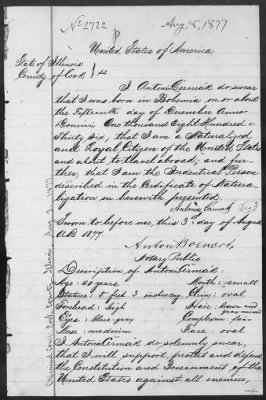 No 2722
Aug. 8, 1877
United States of America
State of Illinois
County of Cook } ss
I Anton Cermak do swear
that I was born in Bohemia on or about
the Fifteenth day of December Anno
Domini One thousand Eight Hundred &
Thirty Six, that I am a Naturalized
and Loyal Citizen of the United States
and about to travel abroad; and fur-
ther, that I am the Identical Person
described in the Certificate of Natura-
lization herewith presented.
Sworn to before me, this 3d day of August
A.D. 1877.
Notary Public
Description of Anton Cermak:
Age: 40 years
Mouth: small
Stature: 5 feet 3 inches
Chin: oval
Forehead: high
Hair: brown and
gray mixed
Eyes: blue gray
Complexion: fair
Nose: medium
Face: oval
I Anton Cermak do solemnly swear,
that I will support, protect and defend
the Constitution and Government of the
United States against all enemies,